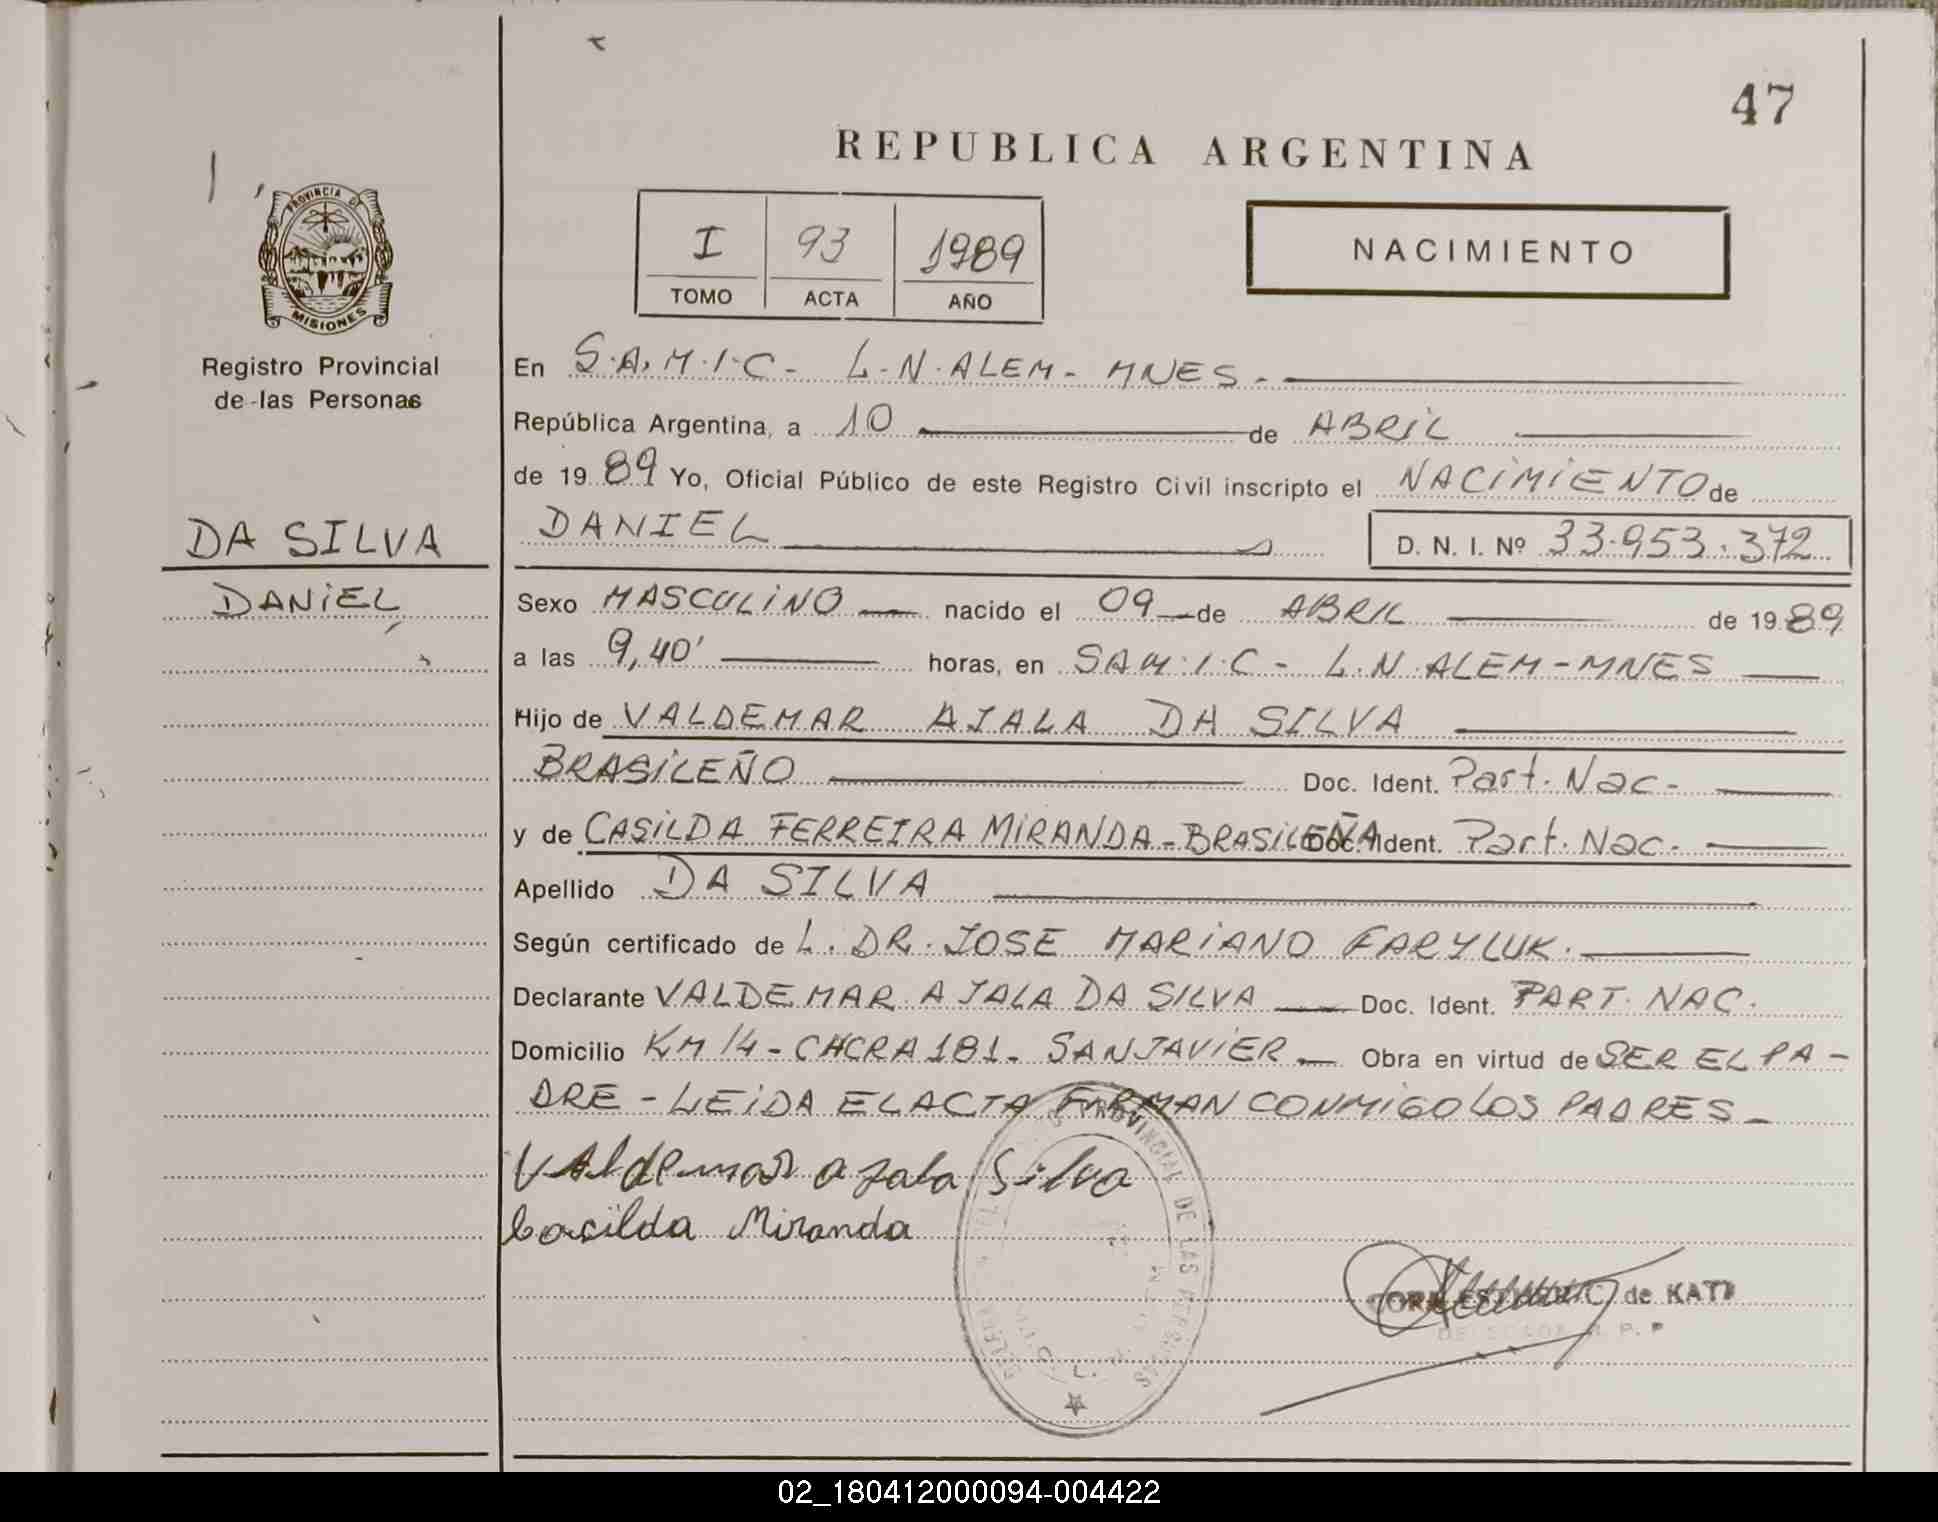 47
REPUBLICA ARGENTINA
PROVINCIA DE
MISIONES
I 93 1989
TOMO ACTA AÑO
NACIMIENTO
Registro Provincial
de las Personas
En S.A.M.I.C - L.N.ALEM - MNES -
República Argentina, a 10 de ABRIL
de 1989 Yo, Oficial Público de este Registro Civil inscripto el NACIMIENTO de
DA SILVA
DANIEL
DANIEL D. N. I. Nº 33.953.372
Sexo MASCULINO nacido el 09 de ABRIL de 1989
a las 9,40' horas, en SAM.I.C - L.N.ALEM - MNES
Hijo de VALDEMAR AJALA DA SILVA
BRASILEÑO Doc. Ident. Part. Nac -
y de CASILDA FERREIRA MIRANDA - BRASILEÑA Doc. Ident. Part. Nac. -
Apellido DA SILVA
Según certificado de L. DR. JOSE MARIANO FARYLUK.
Declarante VALDEMAR AJALA DA SILVA Doc. Ident. PART. NAC.
Domicilio KM 14 - CHCRA 181 - SAN JAVIER - Obra en virtud de SER EL PA -
DRE - LEIDA EL ACTA FIRMAN CONMIGO LOS PADRES -
Valdemar ajala Silva
Casilda Miranda
PROVINCIAL DE LAS PERSONAS
de KATI
02_180412000094-004422